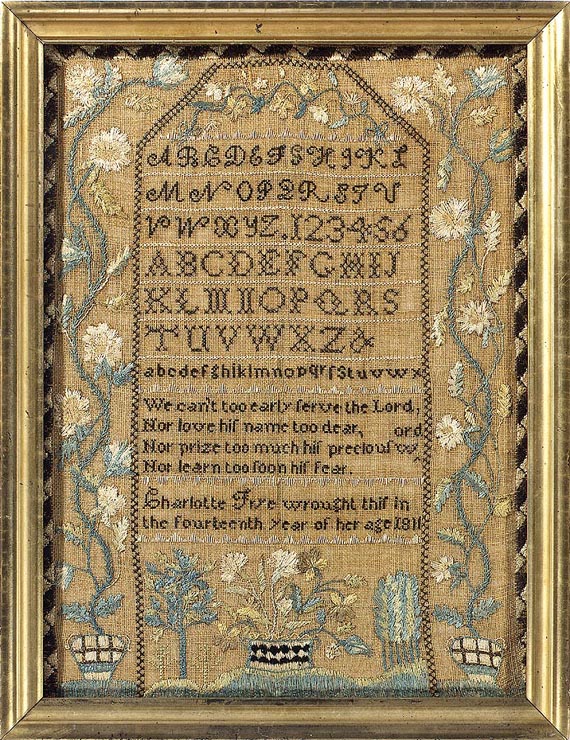 ABCDEFGHIKL
MNOPQRSTU
VWXYZ.123456
ABCDEFGHIJ
KLMNOPQRS
TUVWXZ&
abcdefghiklmnopqrſstuvwx
We can't too early ſerve the Lord,
Nor love hiſ name too dear,
Nor prize too much hiſ preciouſ word
Nor learn too ſoon hiſ fear.
Charlotte wrought thiſ in
the fourteenth year of her age 1811